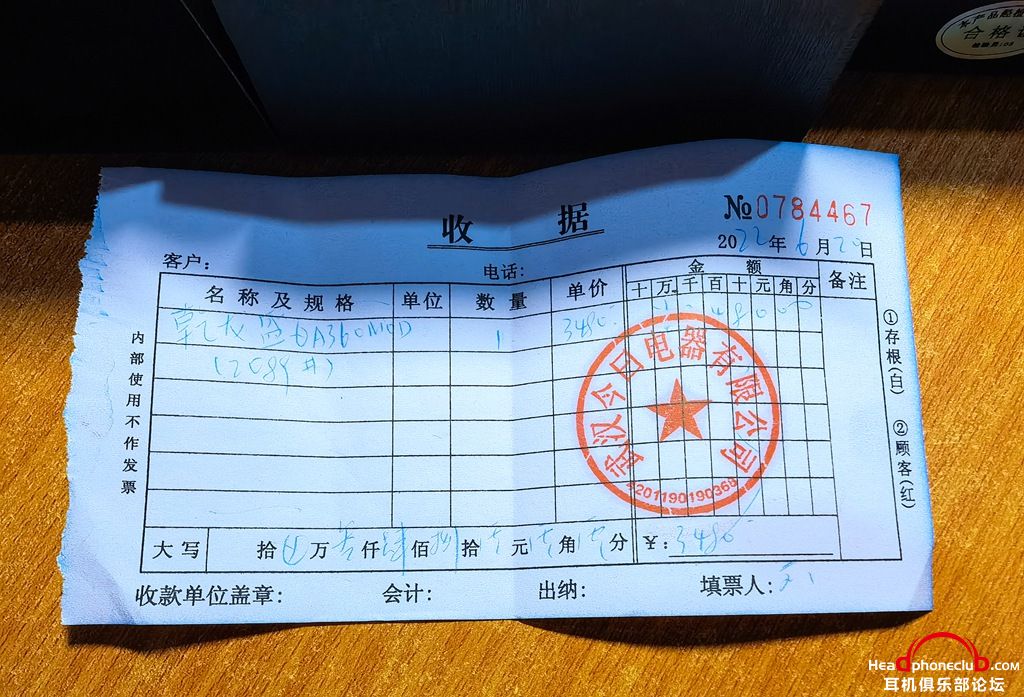 合格证
收 据
№0784467
2022年6月20日
客户: 电话:
名称及规格 单位 数量 单价 金额 备注
十 万 千 百 十 元 角 分
乾龙盛 QA360MOD 1 3480. 348000
(2089#)
内部使用不作发票
①存根(白) ②顾客(红)
武汉今日电器有限公司
4201190190368
大写 拾 万 仟 佰 拾 元 角 分 ¥: 3480
收款单位盖章: 会计: 出纳: 填票人:
Headphoneclub.com
耳机俱乐部论坛